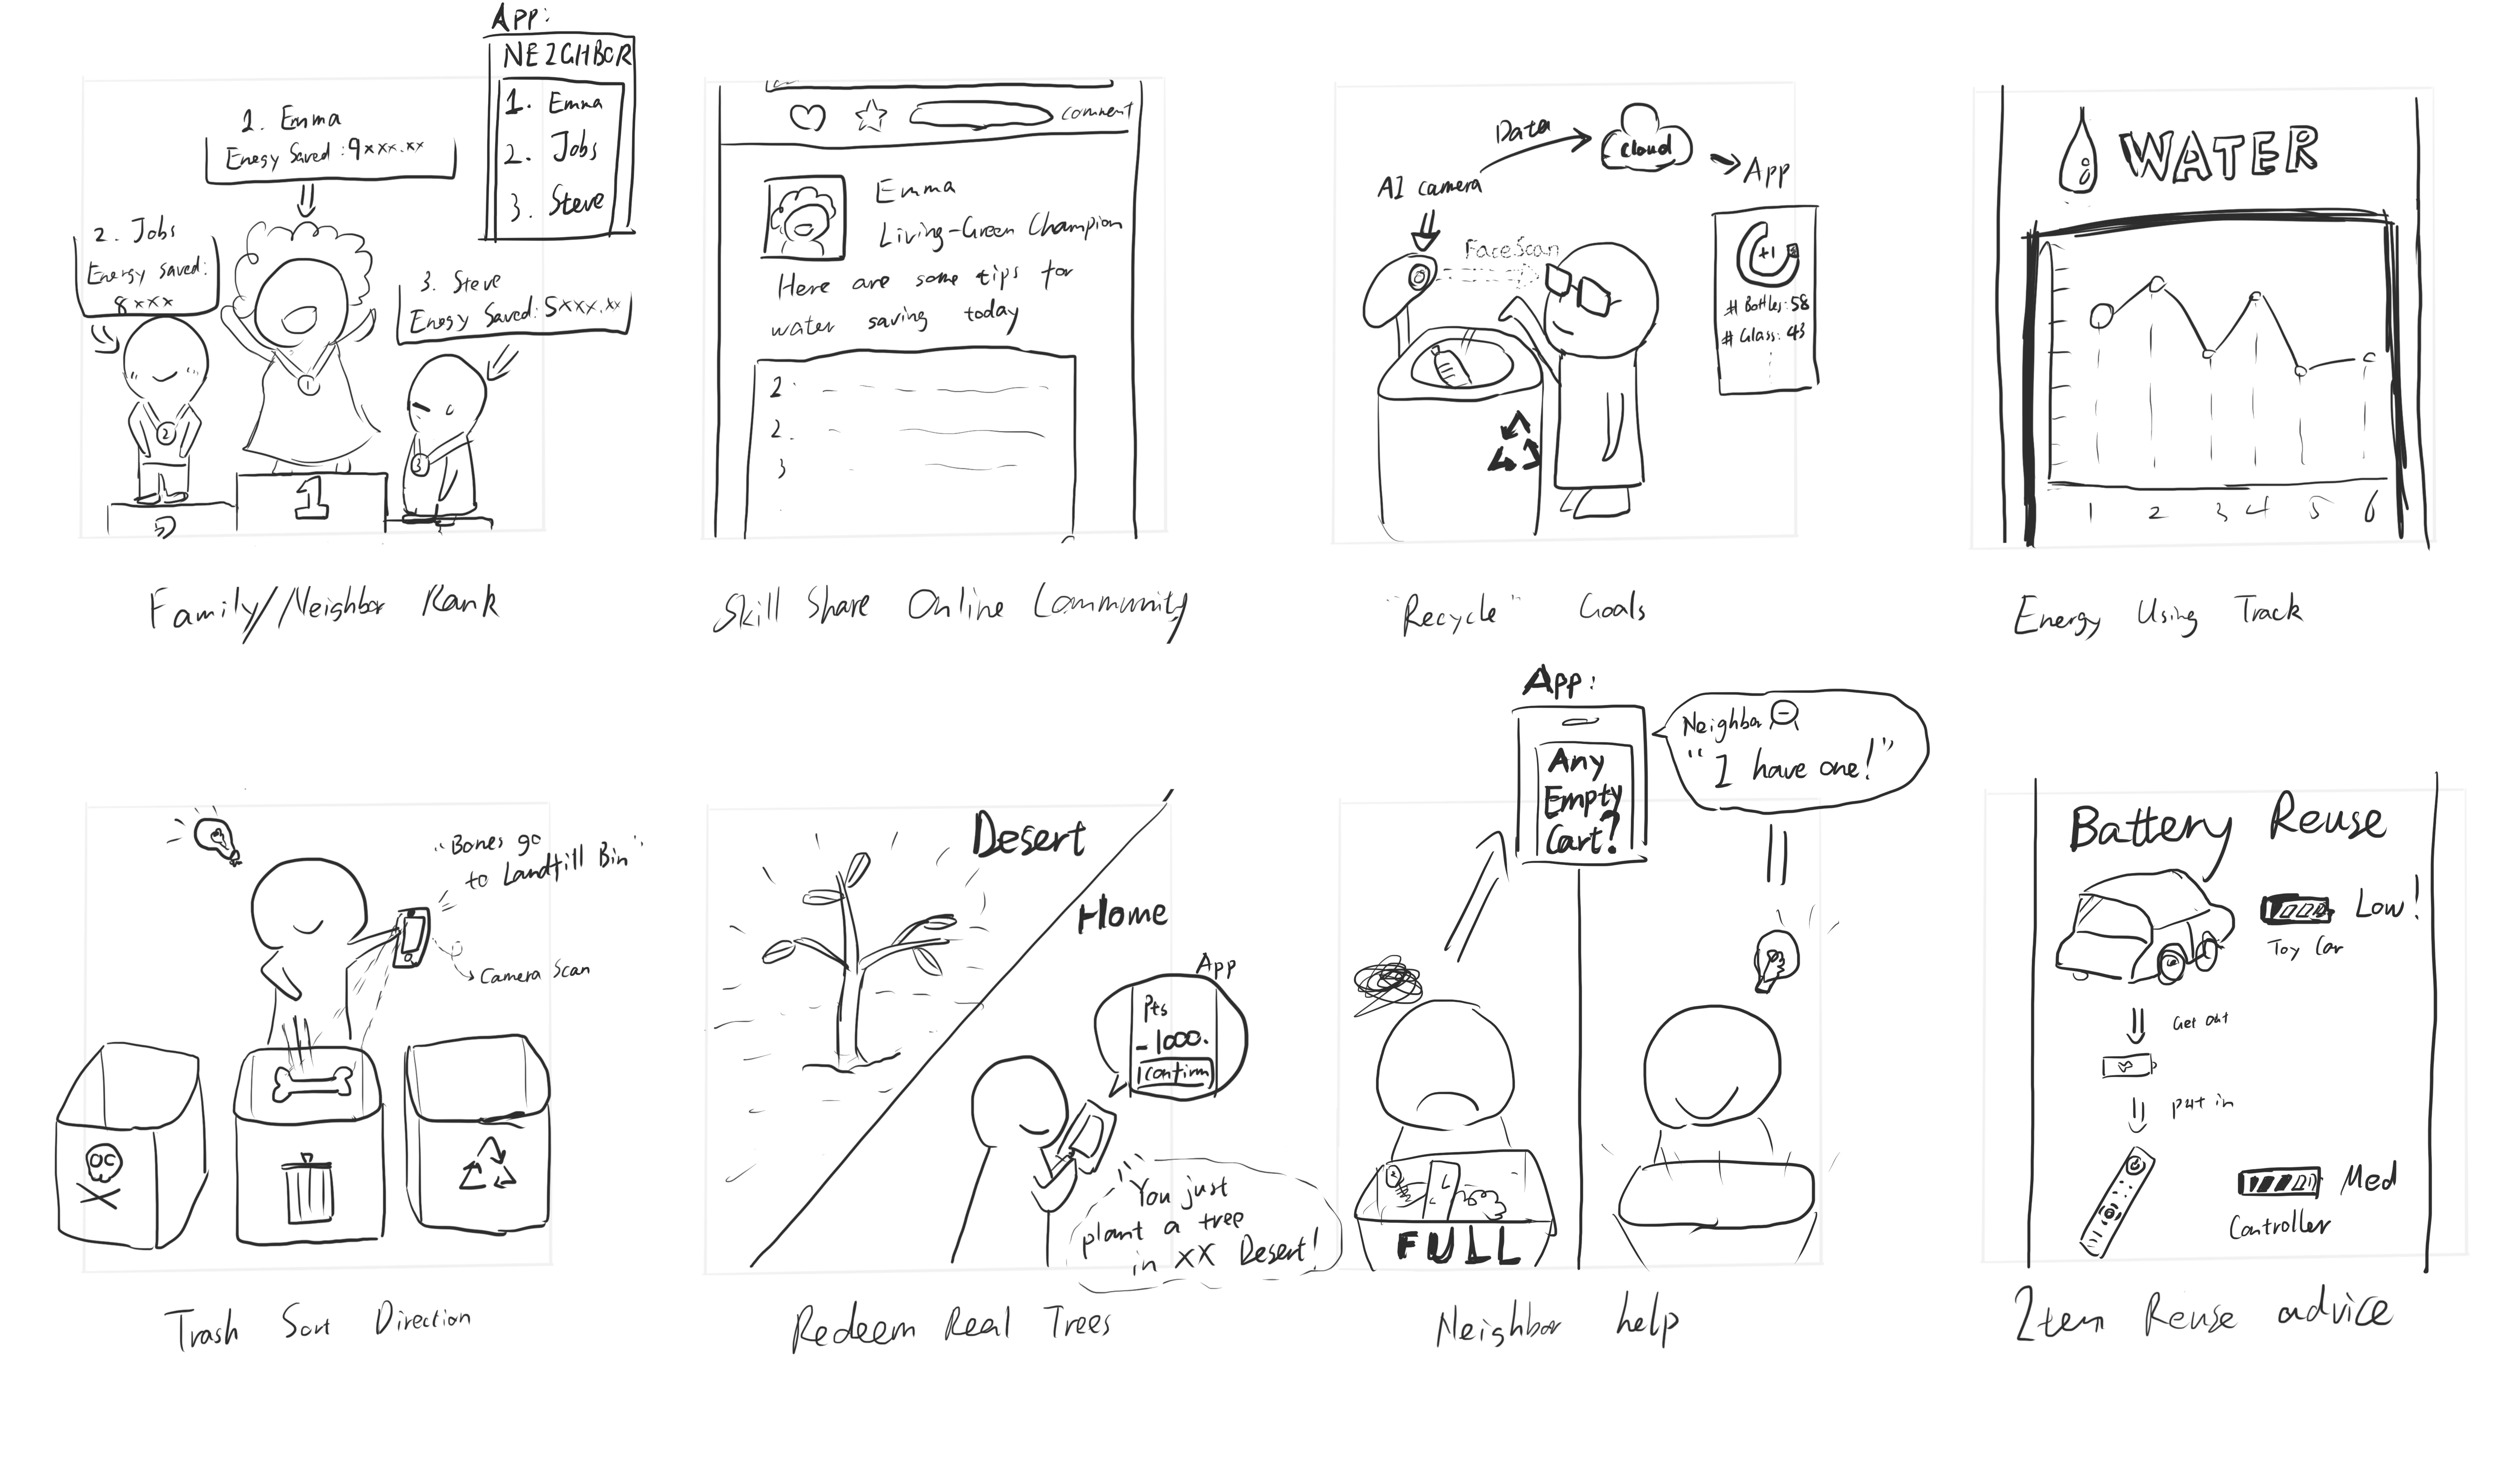 App:
NEIGHBOR
1. Emma
2. Jobs
3. Steve
1. Emma
Enegy Saved : 9xxx.xx
2. Jobs
Energy saved:
8xxx
3. Steve
Enegy Saved: 5xxx.xx
1
2
3
1
2
Family/Neighbor Rank
comment
Emma
Living-Green Champion
Here are some tips for
water saving today
2.
2.
3
Skill Share Online Community
Data
Cloud
App
AI camera
FaceScan
+1
# Bottles: 58
# Glass: 43
"Recycle" Goals
WATER
1 2 3 4 5 6
Energy Using Track
"Bones go
to Landfill Bin"
Camera Scan
Trash Sort Direction
Desert
Home
App
Pts
-1000.
Confirm
"You just
plant a tree
in XX Desert!
Redeem Real Trees
App:
Any
Empty
Cart?
Neighbor
"I have one!"
FULL
Neighbor help
Battery Reuse
Low!
Toy Car
Get out
put in
Med
Controller
Item Reuse advice